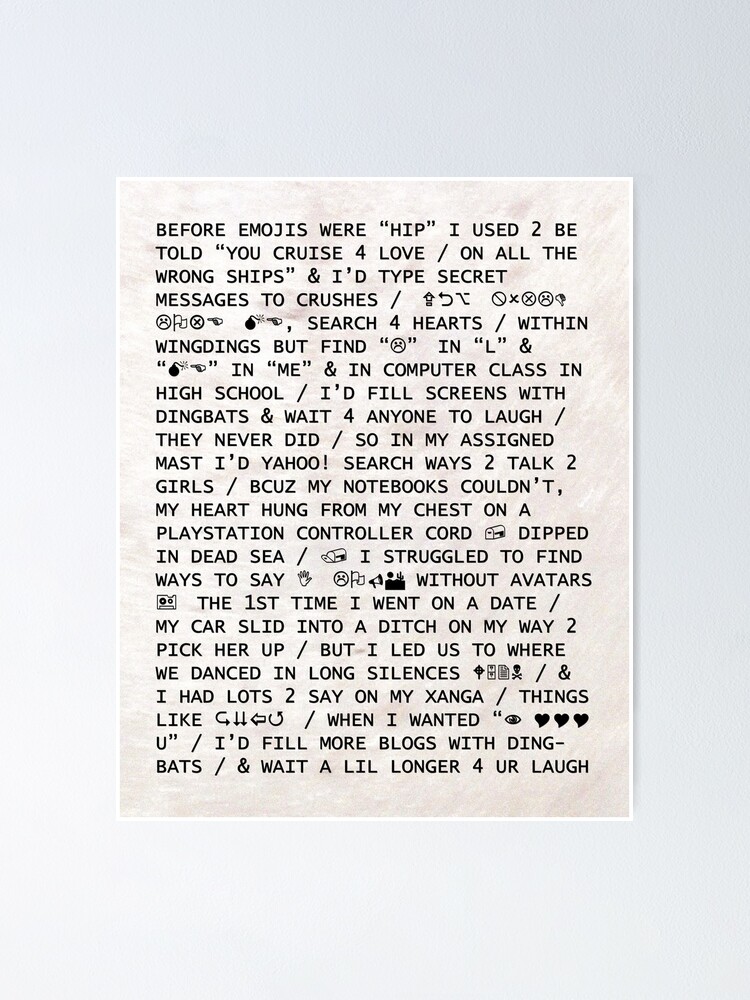 BEFORE EMOJIS WERE “HIP” I USED 2 BE
TOLD “YOU CRUISE 4 LOVE / ON ALL THE
WRONG SHIPS” & I’D TYPE SECRET
MESSAGES TO CRUSHES /
, SEARCH 4 HEARTS / WITHIN
WINGDINGS BUT FIND “☹” IN “L” &
“💣☜” IN “ME” & IN COMPUTER CLASS IN
HIGH SCHOOL / I’D FILL SCREENS WITH
DINGBATS & WAIT 4 ANYONE TO LAUGH /
THEY NEVER DID / SO IN MY ASSIGNED
MAST I’D YAHOO! SEARCH WAYS 2 TALK 2
GIRLS / BCUZ MY NOTEBOOKS COULDN’T,
MY HEART HUNG FROM MY CHEST ON A
PLAYSTATION CONTROLLER CORD DIPPED
IN DEAD SEA / I STRUGGLED TO FIND
WAYS TO SAY WITHOUT AVATARS
THE 1ST TIME I WENT ON A DATE /
MY CAR SLID INTO A DITCH ON MY WAY 2
PICK HER UP / BUT I LED US TO WHERE
WE DANCED IN LONG SILENCES / &
I HAD LOTS 2 SAY ON MY XANGA / THINGS
LIKE / WHEN I WANTED “👁 ♥♥♥
U” / I’D FILL MORE BLOGS WITH DING-
BATS / & WAIT A LIL LONGER 4 UR LAUGH